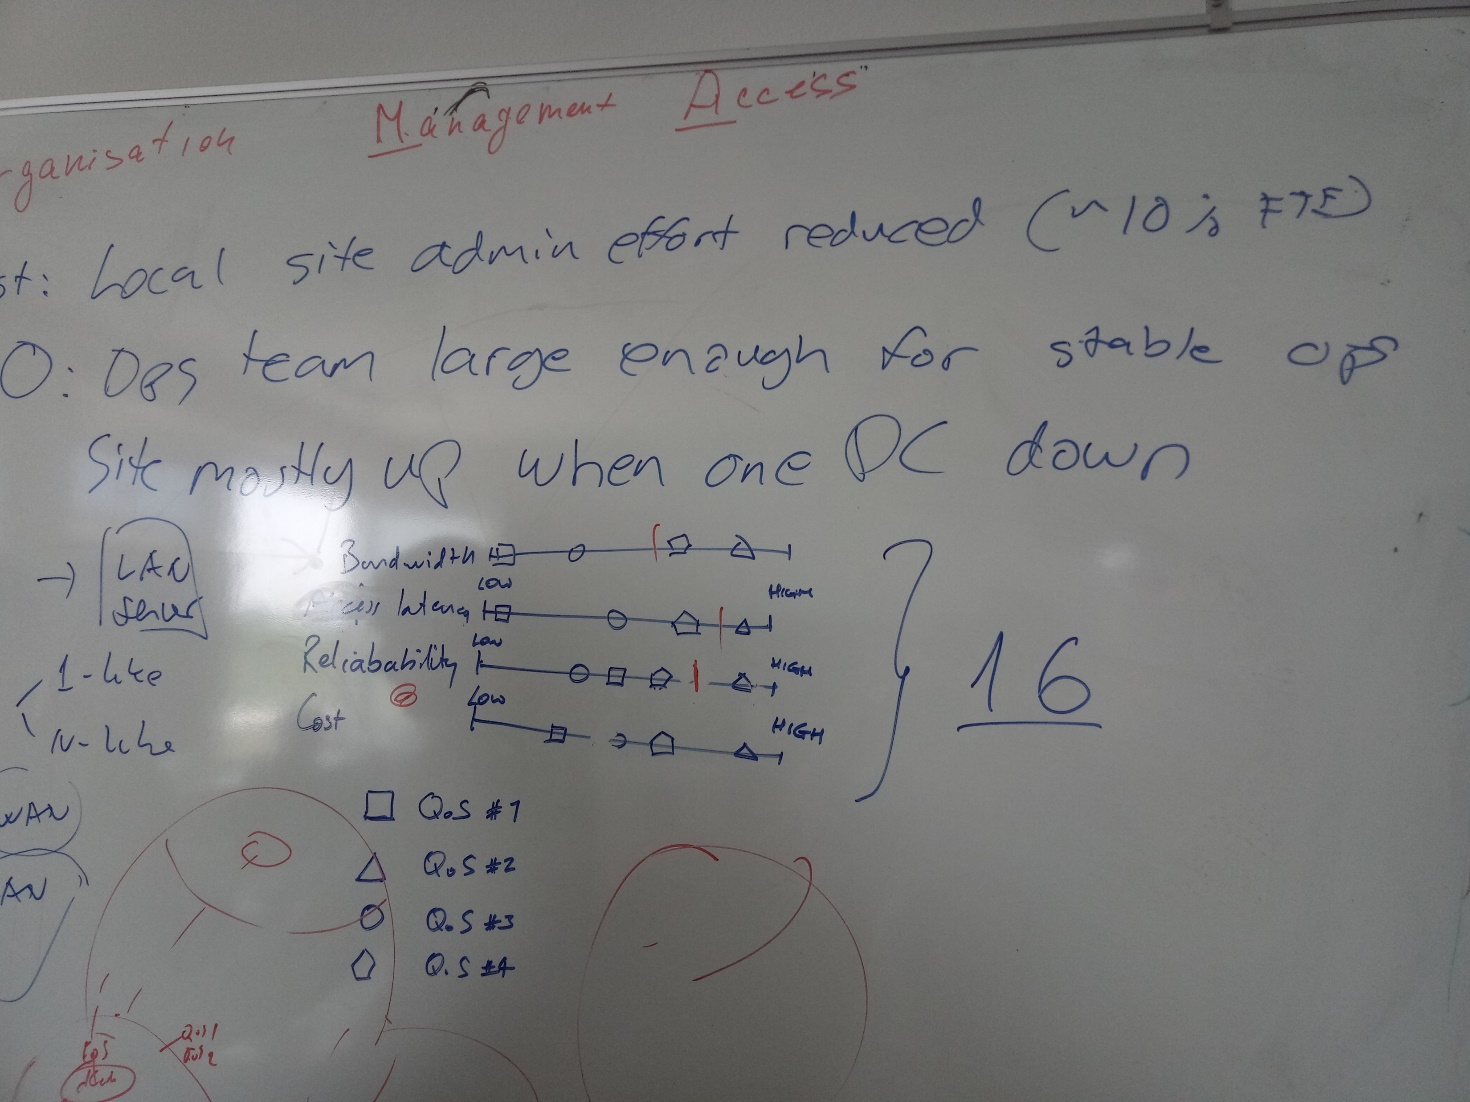 rganisation Management Access"
st: Local site admin effort reduced (~10 is FTE)
O: Ops team large enough for stable ops
Site mostly up when one DC down
→ LAN
server
1-like
N-like
WAN
AN
Bandwidth
LOW HIGH
Access latency
LOW HIGH
Reliabability
LOW HIGH
Cost
16
QoS #1
QoS #2
QoS #3
QoS #4